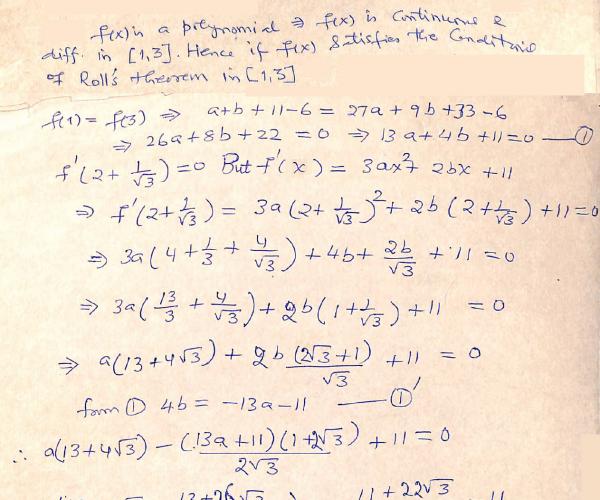 f(x) is a polynomial ⇒ f(x) is Continuous &
diff. in [1,3]. Hence if f(x) Satisfies the Conditions
of Roll's theorem in [1,3]
f(1) = f(3) ⇒ a+b+11-6 = 27a+9b+33-6
⇒ 26a+8b+22 = 0 ⇒ 13a+4b+11=0 — ①
f'(2+1/√3)=0 But f'(x) = 3ax²+2bx+11
⇒ f'(2+1/√3) = 3a(2+1/√3)²+2b(2+1/√3)+11=0
⇒ 3a(4+1/3+4/√3)+4b+2b/√3+11=0
⇒ 3a(13/3+4/√3)+2b(1+1/√3)+11 = 0
⇒ a(13+4√3)+2b(2√3+1)/√3+11 = 0
form ① 4b = -13a-11 — ①'
∴ a(13+4√3) - (13a+11)(1+2√3)/2√3 + 11 = 0
13+26√3 11+22√3 11